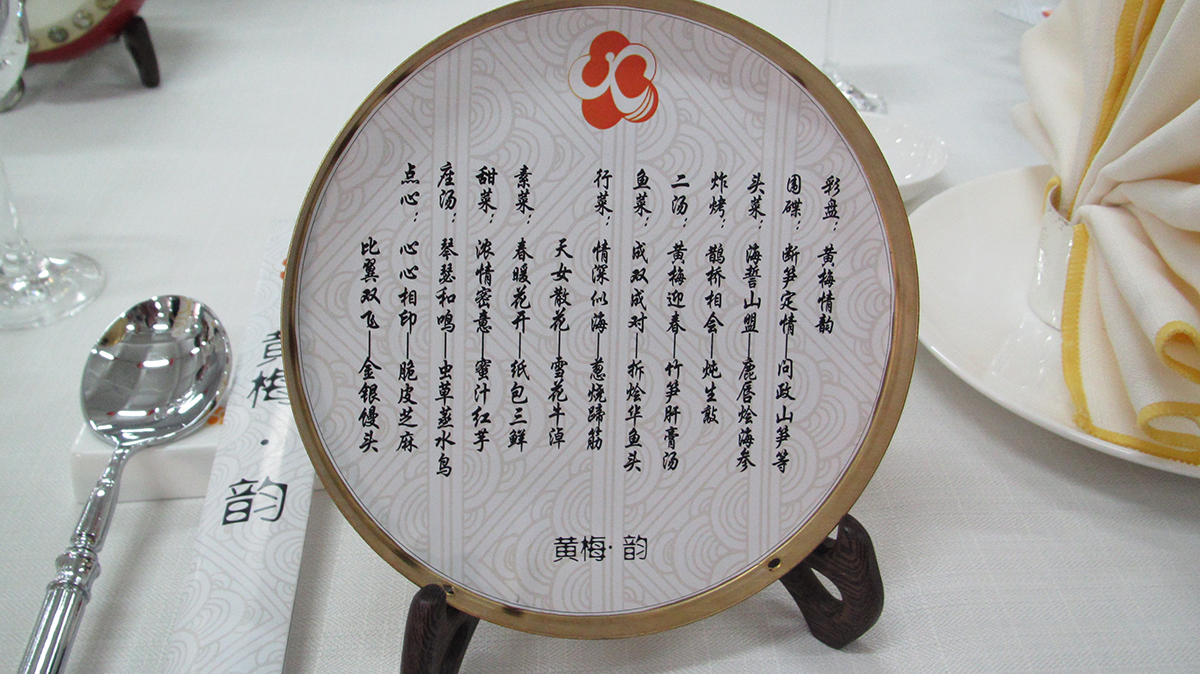 彩盘：黄梅情韵
围碟：断笋定情—问政山笋等
头菜：海誓山盟—鹿唇烩海参
炸烤：鹊桥相会—炖生敲
二汤：黄梅迎春—竹笋肝膏汤
鱼菜：成双成对—拆烩华鱼头
行菜：情深似海—葱烧蹄筋
天女散花—雪花牛淖
素菜：春暖花开—纸包三鲜
甜菜：浓情密意—蜜汁红芋
座汤：琴瑟和鸣—虫草蒸水鸟
点心：心心相印—脆皮芝麻
比翼双飞—金银馒头
黄梅·韵
黄梅·韵